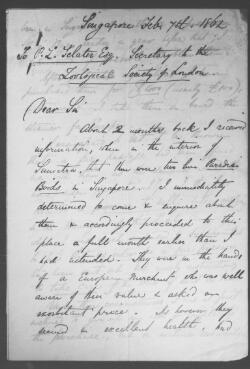 Singapore Feb. 7th. 1862
To P. L. Sclater Esq. Secretary to the
Zoological Society of London
Dear Sir
About 2 months back I received
information, when in the interior of
Sumatra, that there were two live Paradise
Birds in Singapore. I immediately
determined to come & enquire about
them & accordingly proceeded to this
place a full month earlier than I
had intended. They were in the hands
of a European merchant who was well
aware of their value & asked an
exorbitant price. As however they
seemed in excellent health, and